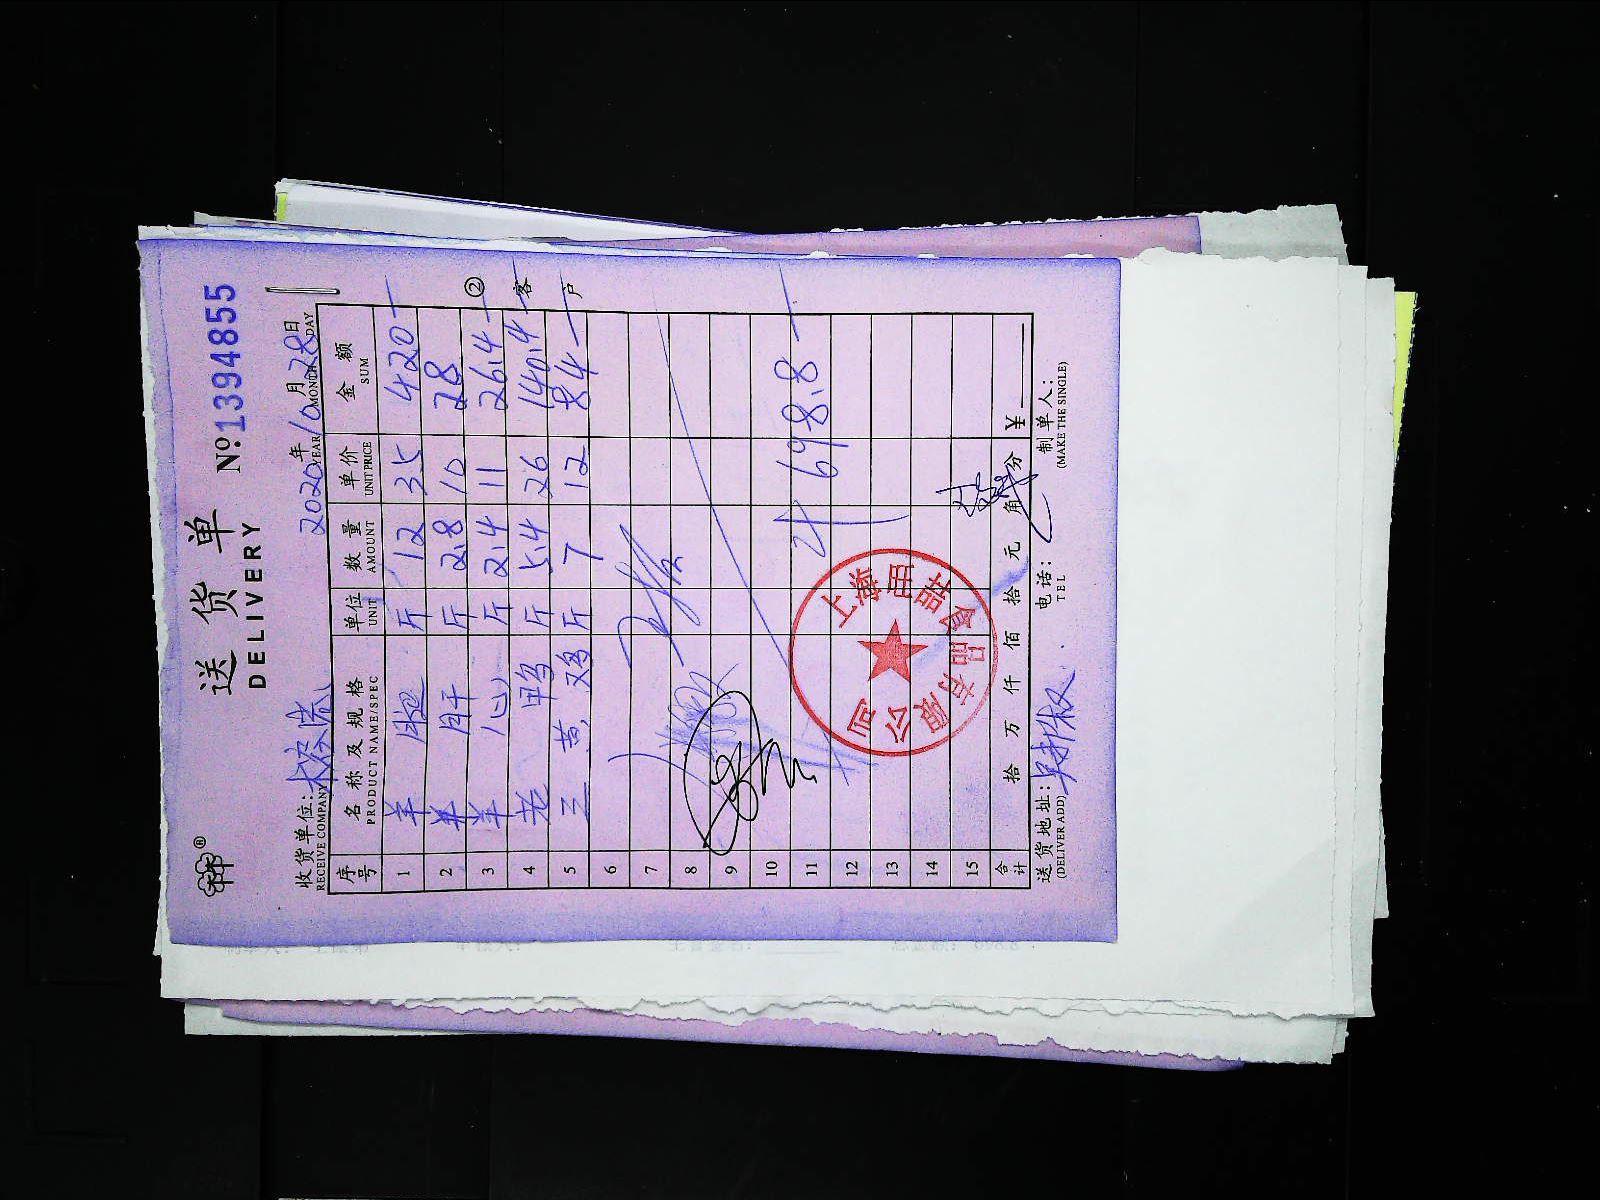 送货单
DELIVERY
№ 1394855
收货单位:
RECEIVE COMPANY
2020年10月28日
YEAR MONTH DAY
序号 名称及规格 单位 数量 单价 金额
PRODUCT NAME/SPEC UNIT AMOUNT UNIT PRICE SUM
1 羊 斤 12 35 420
2 羊肝 斤 2.8 10 28
3 羊心 斤 2.4 11 26.4
4 老鸭 斤 5.4 26 140.4
5 三黄鸡 斤 7 12 84
6
7
8
9
10
11 698.8
12
13
14
15
合计 拾 万 仟 佰 拾 元 角 分 ¥
② 客户
上海 食品有限公司
送货地址:
(DELIVER ADD)
电话:
TEL
制单人:
(MAKE THE SINGLE)